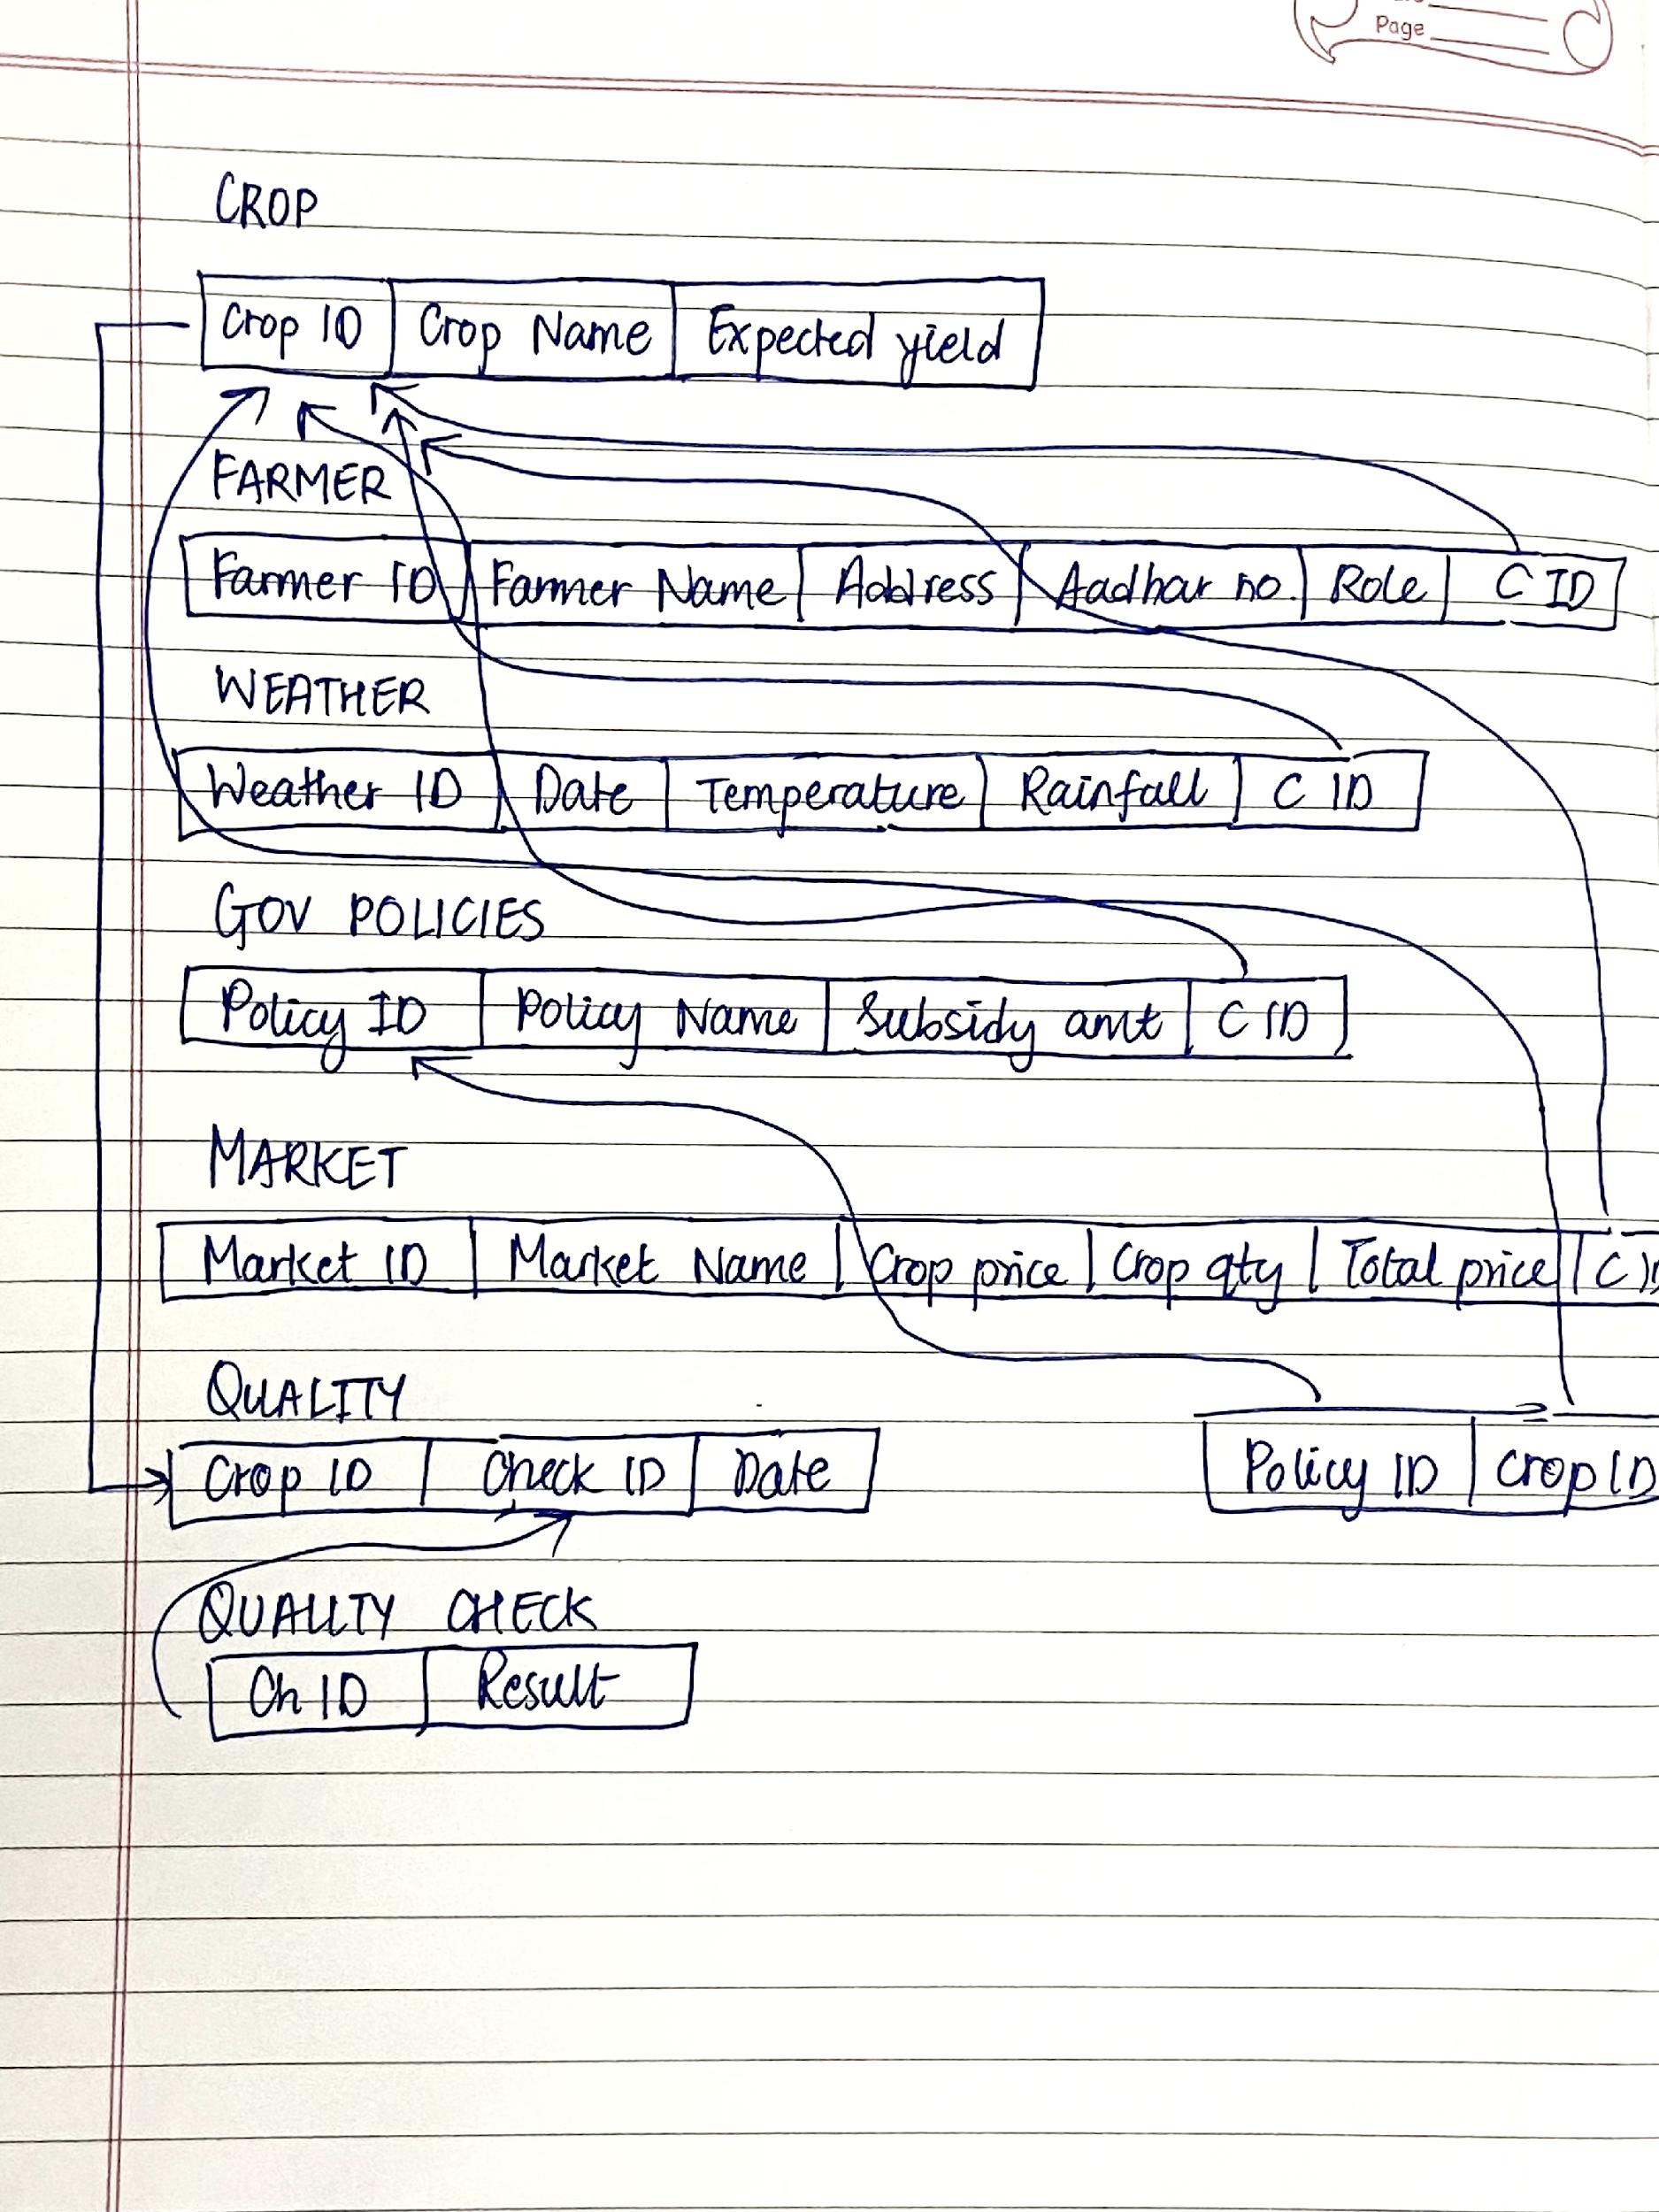 Page
CROP
Crop ID Crop Name Expected yield
FARMER
Farmer ID Farmer Name Address Aadhar no. Role C ID
WEATHER
Weather ID Date Temperature Rainfall C ID
GOV POLICIES
Policy ID Policy Name Subsidy amt C ID
MARKET
Market ID Market Name Crop price Crop qty Total price C ID
QUALITY
Crop ID Check ID Date
Policy ID Crop ID
QUALITY CHECK
Ch ID Result